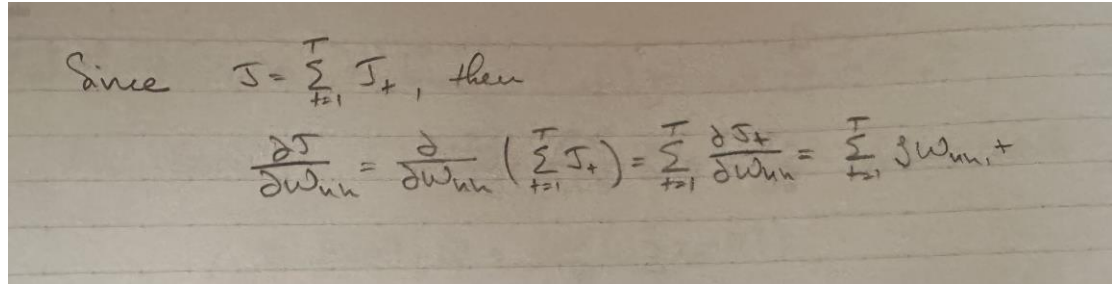 Since J = ∑_{t=1}^{T} J_t, then
∂J/∂W_{hh} = ∂/∂W_{hh} ( ∑_{t=1}^{T} J_t ) = ∑_{t=1}^{T} ∂J_t/∂W_{hh} = ∑_{t=1}^{T} g_{W_{hh}, t}